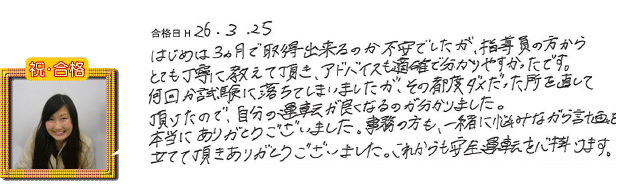 合格日 H 26.3.25
祝・合格
はじめは3ヵ月で取得出来るのか不安でしたが、指導員の方から
とても丁寧に教えて頂き、アドバイスも適確で分かりやすかったです。
何回か試験に落ちてしまいましたが、その都度ダメだった所を直して
頂けたので、自分の運転が良くなるのが分かりました。
本当にありがとうございました。事務の方も、一緒に悩みながら計画を
立てて頂きありがとうございました。これからも安全運転を心掛けます。